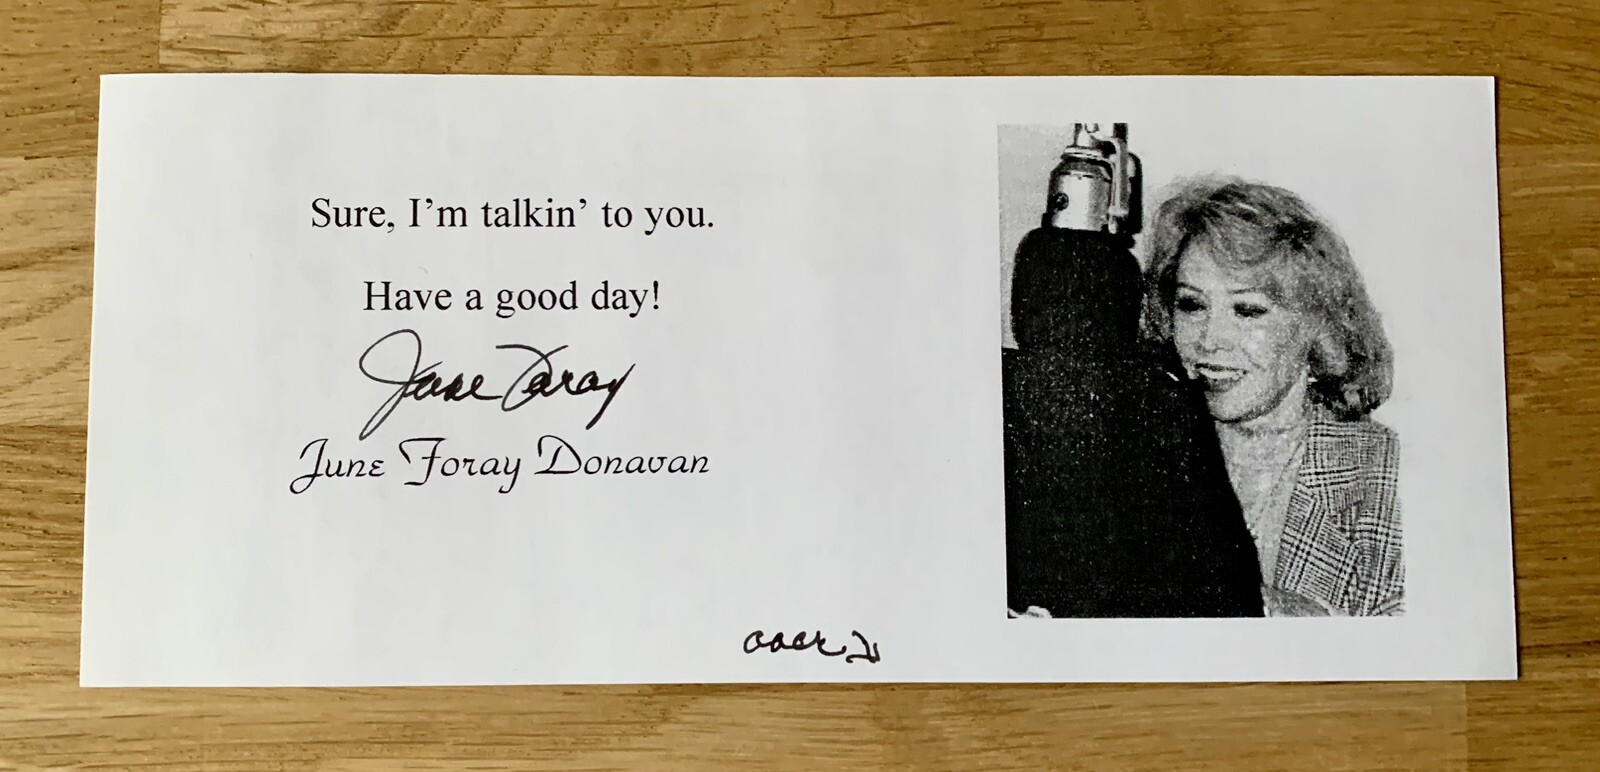 Sure, I'm talkin' to you.
Have a good day!
June Foray
June Foray Donavan
over